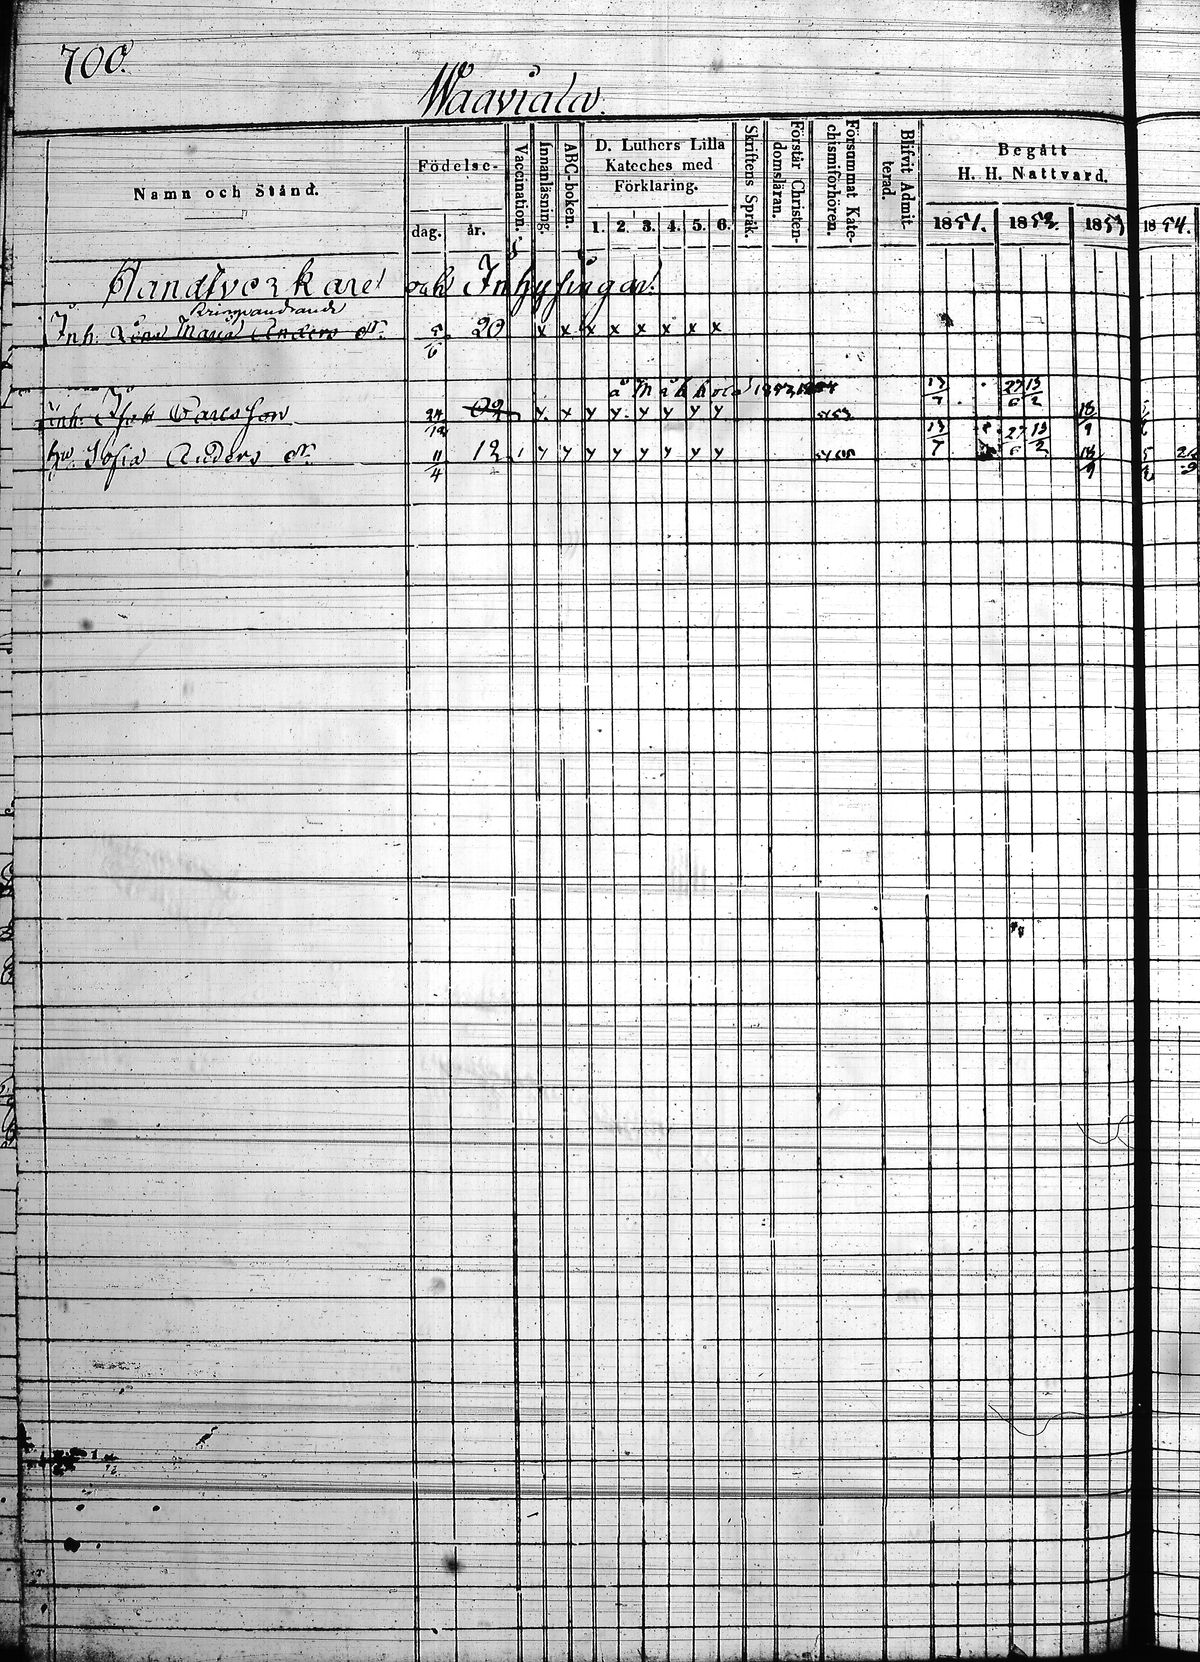 700.
Waaviala.
Namn och Stånd.
Födelse-
dag.
år.
Vaccination.
Innanläsning.
ABC-boken.
D. Luthers Lilla
Kateches med
Förklaring.
1. 2. 3. 4. 5. 6.
Skriftens Språk.
Förstår Christen-
domsläran.
Försummat Kate-
chismiförhören.
Blifvit Admit-
terad.
Begått
H. H. Nattvard.
1851. 1852. 1853 1854.
Handtverkare och Inhysingar.
Inh. Maria Anders dr. 5/6 20 x x x x x x x x
å 1853 13/7 27/6 13/2
inh. Carlsson 24/12 y x y y y y y y 18/9
hu. Sofia Anders dr. 11/4 12 y y y y y y y y 13/7 27/6 13/2 18/9